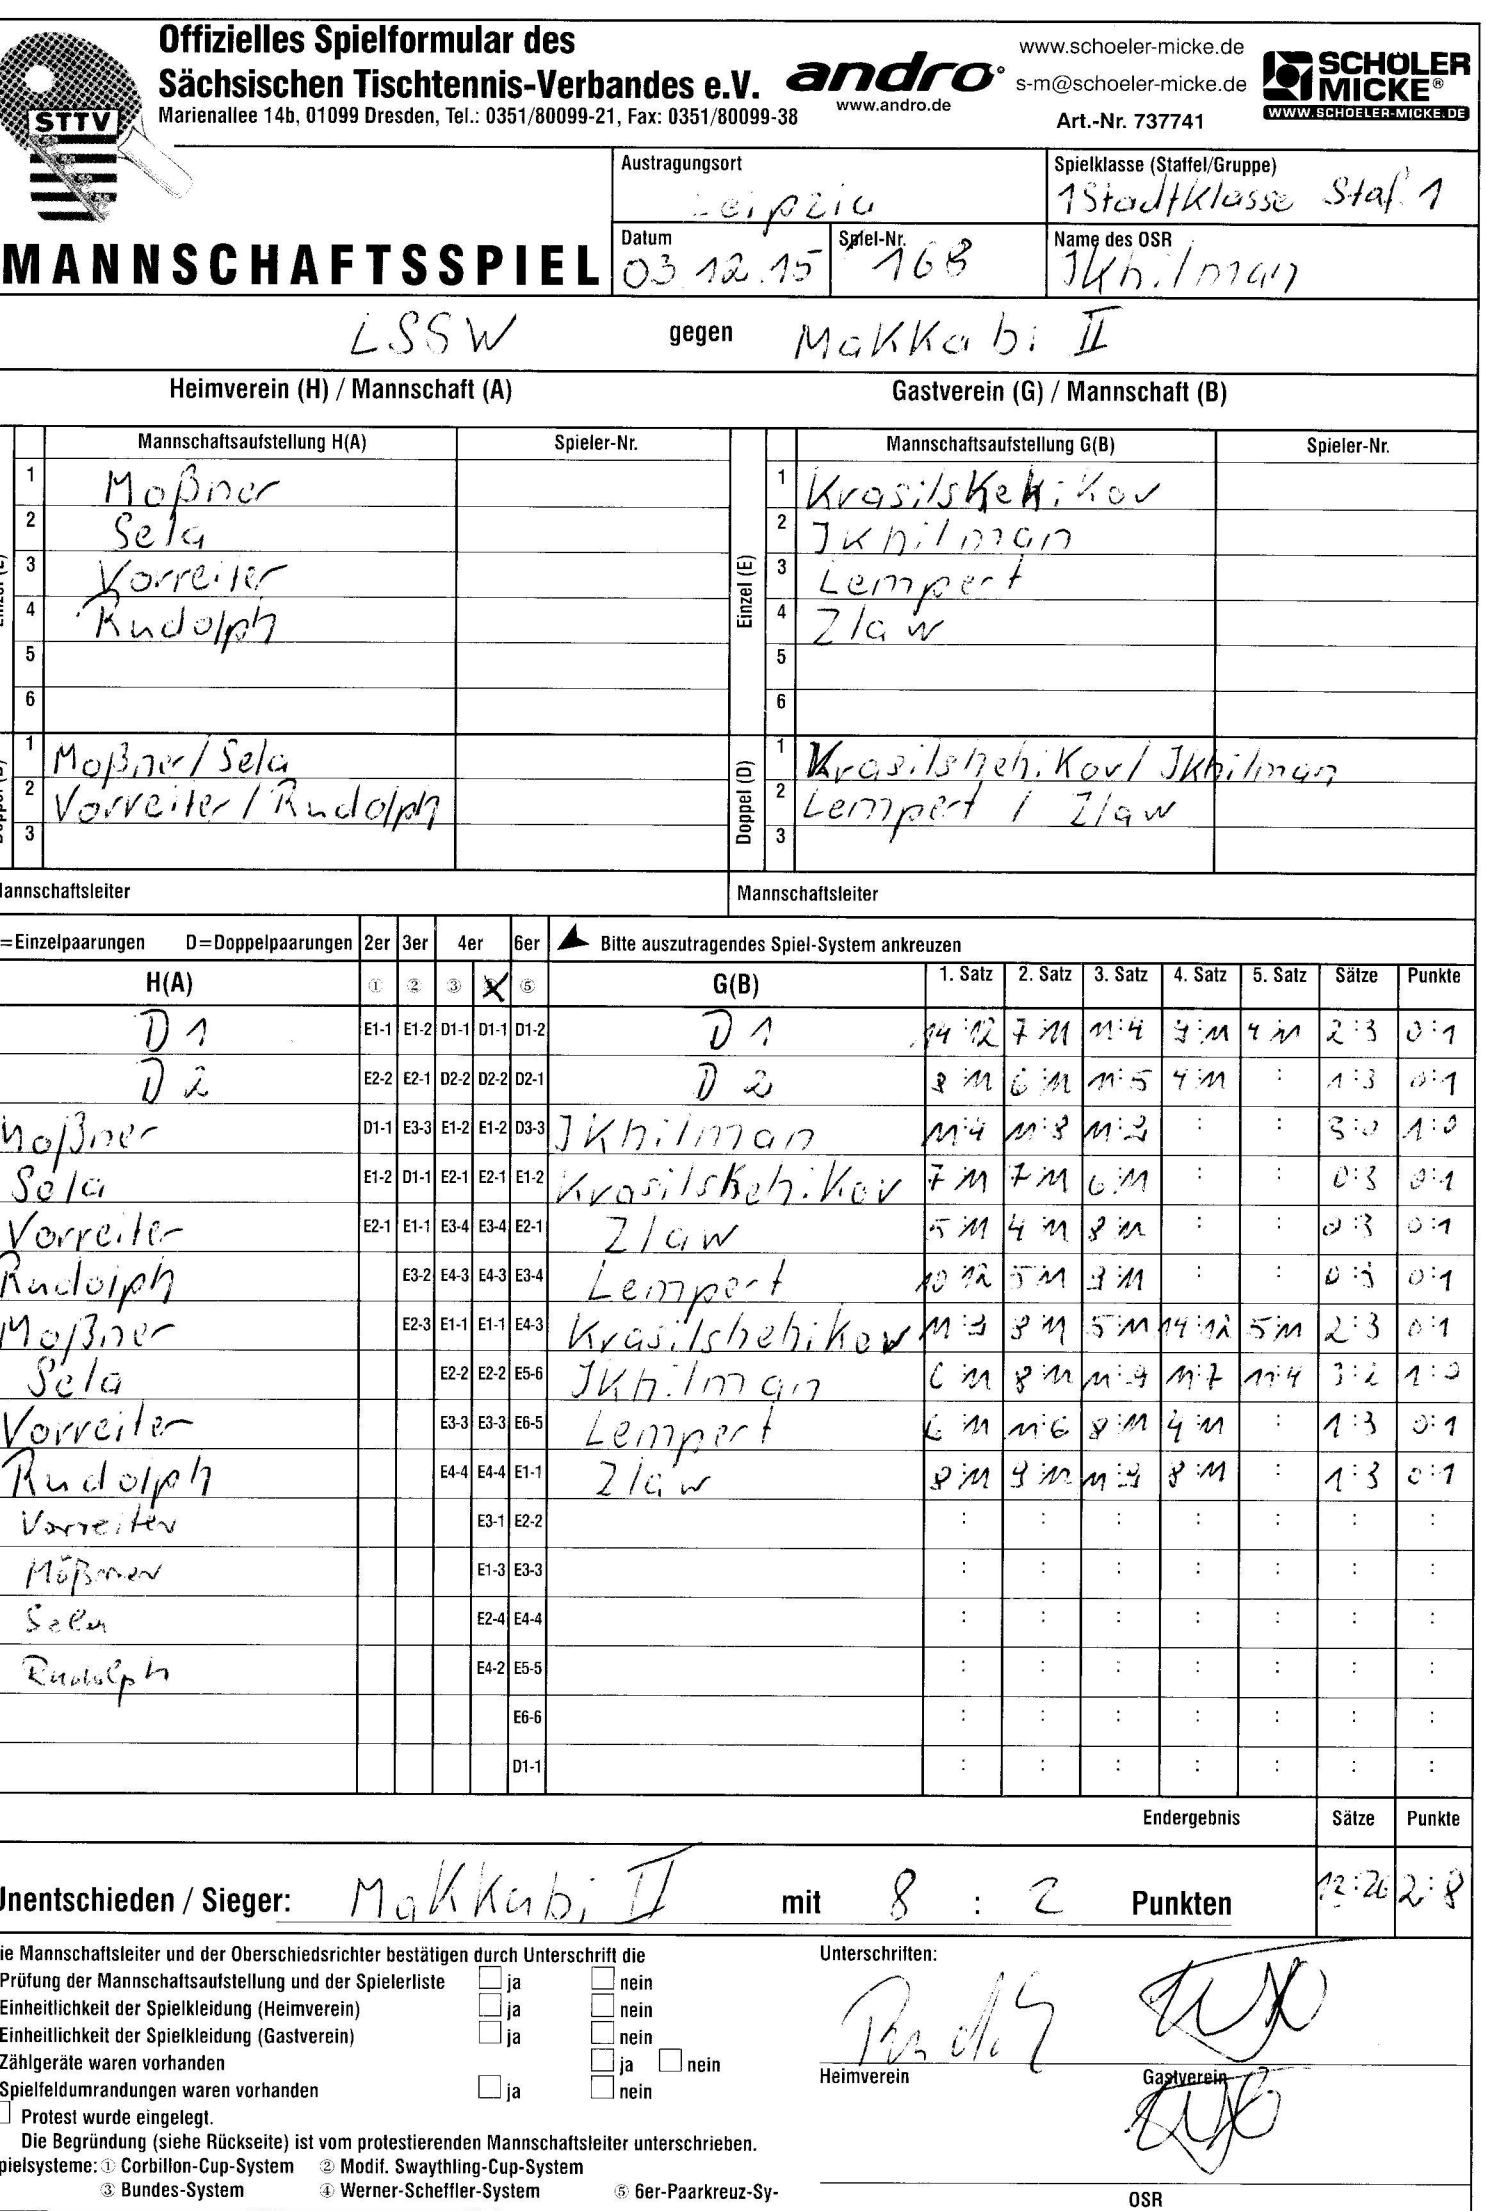 Offizielles Spielformular des
Sächsischen Tischtennis-Verbandes e.V.
Marienallee 14b, 01099 Dresden, Tel.: 0351/80099-21, Fax: 0351/80099-38
STTV
andro
www.andro.de
www.schoeler-micke.de
s-m@schoeler-micke.de
Art.-Nr. 737741
SCHÖLER MICKE®
WWW.SCHOELER-MICKE.DE
Austragungsort
Leipzig
Spielklasse (Staffel/Gruppe)
1 Stadtklasse Staf. 1
MANNSCHAFTSSPIEL
Datum
03.12.15
Spiel-Nr.
168
Name des OSR
Ikhilman
LSSW gegen Makkabi II
Heimverein (H) / Mannschaft (A) Gastverein (G) / Mannschaft (B)
Mannschaftsaufstellung H(A) Spieler-Nr. Mannschaftsaufstellung G(B) Spieler-Nr.
Einzel (E)
1 Moßner 1 Krasilskehikov
2 Sela 2 Ikhilman
3 Vorreiter 3 Lempert
4 Rudolph 4 Zlaw
5 5
6 6
Doppel (D)
1 Moßner / Sela 1 Krasilshehikov / Ikhilman
2 Vorreiter / Rudolph 2 Lempert / Zlaw
3 3
Mannschaftsleiter Mannschaftsleiter
=Einzelpaarungen D=Doppelpaarungen 2er 3er 4er 6er Bitte auszutragendes Spiel-System ankreuzen
H(A) ① ② ③ X ⑤ G(B) 1. Satz 2. Satz 3. Satz 4. Satz 5. Satz Sätze Punkte
D 1 E1-1 E1-2 D1-1 D1-1 D1-2 D 1 14:12 7:11 11:4 9:11 4:11 2:3 0:1
D 2 E2-2 E2-1 D2-2 D2-2 D2-1 D 2 8:11 6:11 11:5 4:11 : 1:3 0:1
Moßner D1-1 E3-3 E1-2 E1-2 D3-3 Ikhilman 11:4 11:8 11:9 : : 3:0 1:0
Sela E1-2 D1-1 E2-1 E2-1 E1-2 Krasilskehikov 7:11 7:11 6:11 : : 0:3 0:1
Vorreiter E2-1 E1-1 E3-4 E3-4 E2-1 Zlaw 5:11 4:11 8:11 : : 0:3 0:1
Rudolph E3-2 E4-3 E4-3 E3-4 Lempert 10:12 5:11 9:11 : : 0:3 0:1
Moßner E2-3 E1-1 E1-1 E4-3 Krasilshehikov 11:9 8:11 5:11 14:12 5:11 2:3 0:1
Sela E2-2 E2-2 E5-6 Ikhilman 6:11 8:11 11:9 11:7 11:4 3:2 1:0
Vorreiter E3-3 E3-3 E6-5 Lempert 6:11 11:6 8:11 4:11 : 1:3 0:1
Rudolph E4-4 E4-4 E1-1 Zlaw 8:11 9:11 11:9 8:11 : 1:3 0:1
Vorreiter E3-1 E2-2 : : : : : : :
Mößner E1-3 E3-3 : : : : : : :
Sela E2-4 E4-4 : : : : : : :
Rudolph E4-2 E5-5 : : : : : : :
E6-6 : : : : : : :
D1-1 : : : : : : :
Endergebnis Sätze Punkte
Unentschieden / Sieger: Makkabi II mit 8 : 2 Punkten 12:26 2:8
ie Mannschaftsleiter und der Oberschiedsrichter bestätigen durch Unterschrift die Unterschriften:
Prüfung der Mannschaftsaufstellung und der Spielerliste ja nein
Einheitlichkeit der Spielkleidung (Heimverein) ja nein
Einheitlichkeit der Spielkleidung (Gastverein) ja nein
Zählgeräte waren vorhanden ja nein
Spielfeldumrandungen waren vorhanden ja nein
Heimverein Gastverein
Protest wurde eingelegt.
Die Begründung (siehe Rückseite) ist vom protestierenden Mannschaftsleiter unterschrieben.
pielsysteme: ① Corbillon-Cup-System ② Modif. Swaythling-Cup-System
③ Bundes-System ④ Werner-Scheffler-System ⑤ 6er-Paarkreuz-Sy-
OSR